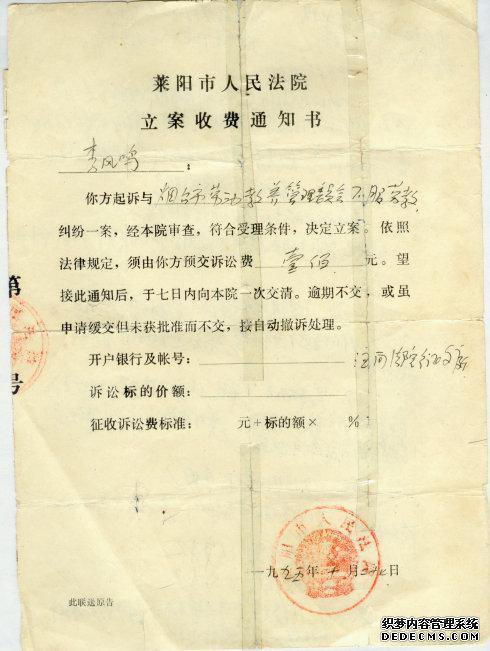 莱阳市人民法院
立案收费通知书
李风鸣：
你方起诉与烟台市劳动教养管理委员会不服劳教
纠纷一案，经本院审查，符合受理条件，决定立案。依照
法律规定，须由你方预交诉讼费壹佰元。望
接此通知后，于七日内向本院一次交清。逾期不交，或虽
申请缓交但未获批准而不交，按自动撤诉处理。
第
号
开户银行及帐号：
诉讼标的价额：
征收诉讼费标准： 元＋标的额× %
阳市人民法
一九九五年十月二十七日
此联送原告
织梦内容管理系统
DEDECMS.COM